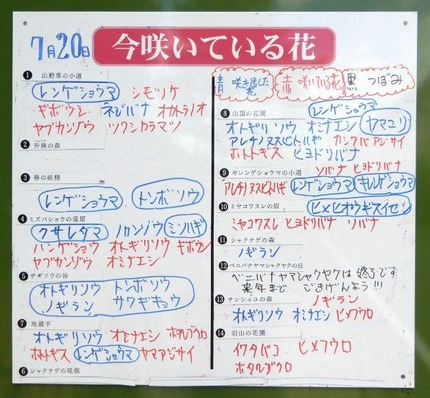 7月20日
今咲いている花
青 咲き出した 赤 咲いている花 黒 つぼみ
1 山野草の小道
レンゲショウマ シモツケ
ギボウシ ネジバナ オカトラノオ
ヤブカンゾウ ツクシカラマツ
2 升麻の森
3 春の妖精
レンゲショウマ トンボソウ
4 ミズバショウの湿原
クサレダマ ノカンゾウ ミソハギ
ハンゲショウ オトギリソウ ギボウシ
ヤブカンゾウ オミナエシ
5 サギソウの谷
オトギリソウ トンボソウ
ノギラン サワギキョウ
7 地蔵平
オトギリソウ オミナエシ ホタルブクロ
ホトトギス レンゲショウマ ヤマアジサイ
6 シャクナゲの尾根
8 山頂の花園
レンゲショウマ
オトギリソウ オミナエシ ヤマユリ
アレチノヌスビトハギ カシワバアジサイ
ホトトギス ヒヨドリバナ
9 キレンゲショウマの小道
ソバナ ヒヨドリバナ
アレチノヌスビトハギ レンゲショウマ キレンゲショウマ
10 ミヤコワスレの原
ヒメヒオウギスイセン
ミヤコワスレ ヒヨドリバナ ソバナ
11 シャクナゲの森
ノギラン
12 ベニバナヤマシャクヤクの丘
ベニバナヤマシャクヤクは終了です
来年まで ごきげんよう!!!
13 サンショユの森
ノギラン
オトギリソウ オミナエシ ヒメフウロ
14 岩山の花園
イワタバコ ヒメフウロ
ホタルブクロ